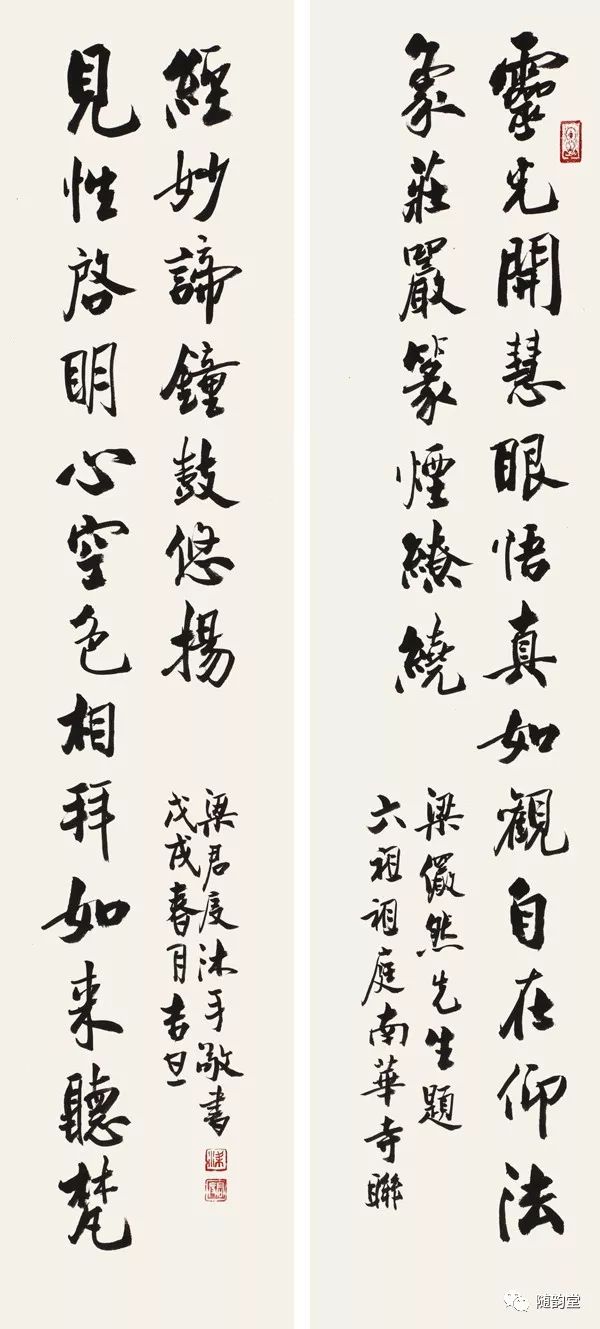 靈光開慧眼悟真如觀自在仰法
象莊嚴篆煙繚繞
梁儼然先生題
六祖祖庭南華寺聯
見性啓明心空色相拜如来聽梵
經妙諦鐘鼓悠揚
戊戌春月吉旦
梁君度沐手敬書
随韵堂